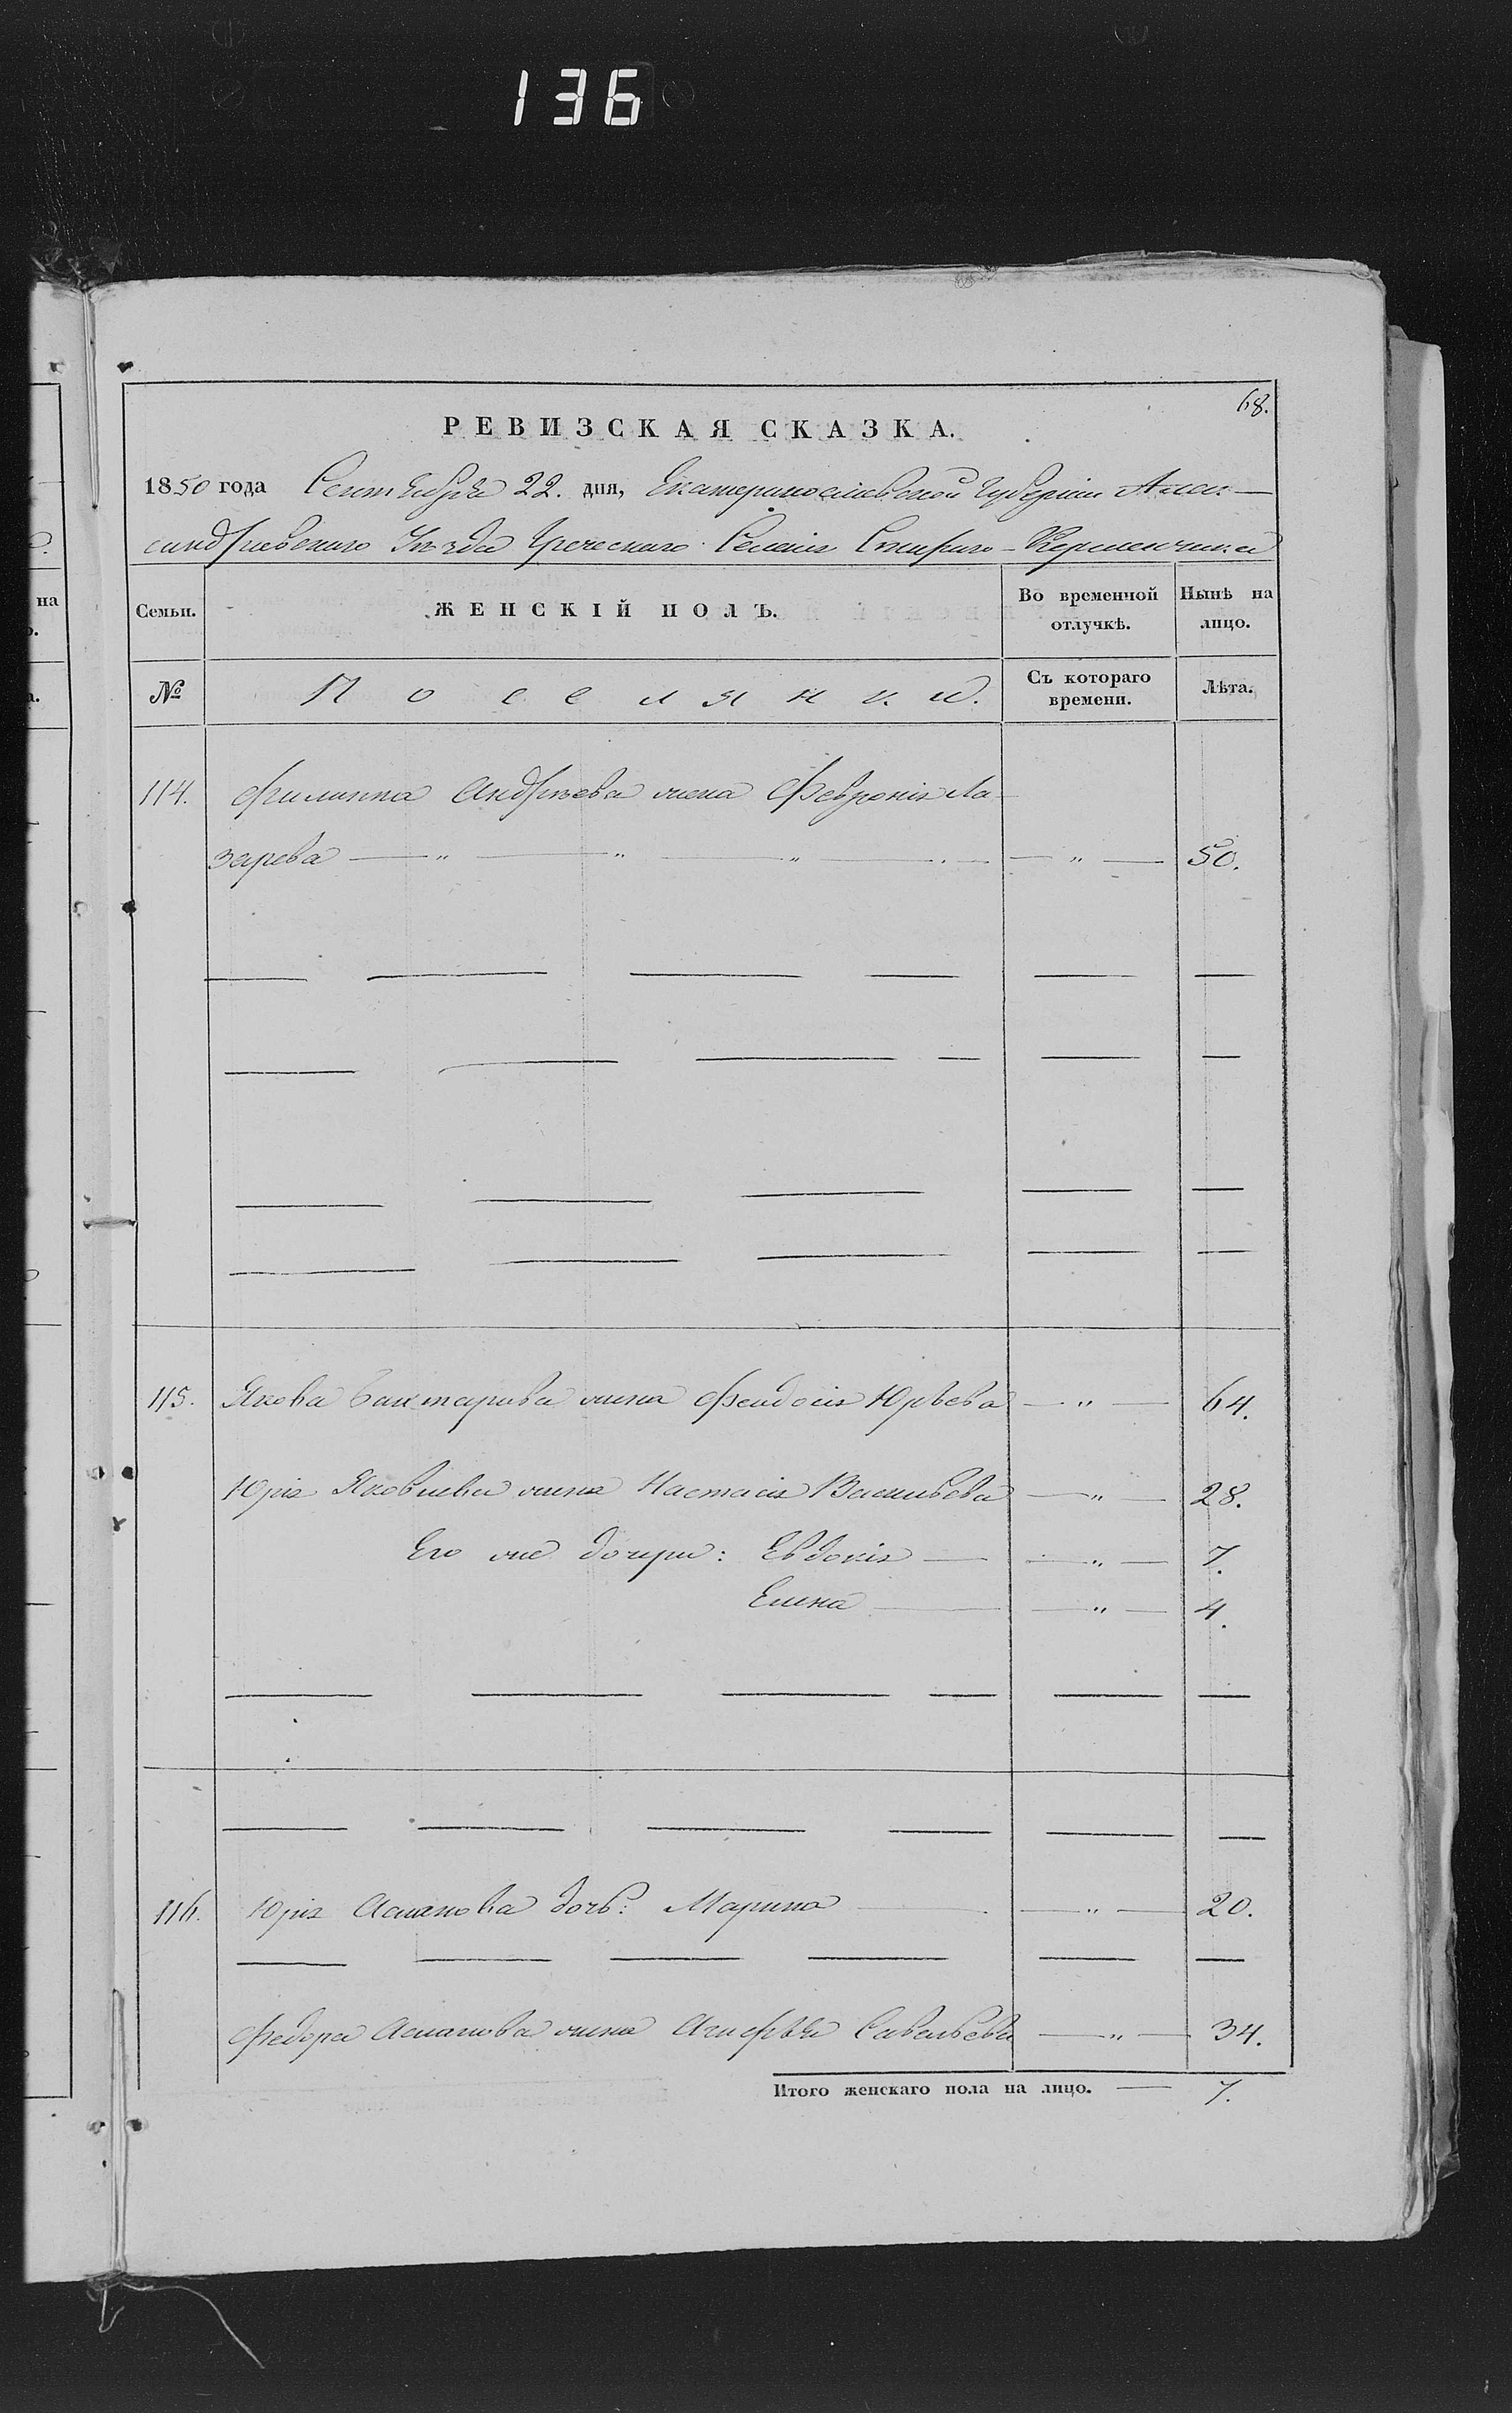 136
68.
РЕВИЗСКАЯ СКАЗКА.
1850 года Сентября 22. дня, Екатеринославской Губерніи Алек-
сандровскаго Уѣзда Греческаго Селенія Старого-Керменчика
на
Семьи.
ЖЕНСКІЙ ПОЛЪ.
Во временной отлучкѣ.
Нынѣ на лицо.
№
Поселянки.
Съ котораго времени.
Лѣта.
114. Филиппа Андреева жена Февронія Ла-
зарева — " — " — " — " — 50.
115. Якова жена Феодосія Юрьева — " — 64.
Юрія Яковлева жена Настасія Васильева — " — 28.
Его же дочери: Евдокія — " — 7.
Елена — " — 4.
116. Юрія Асланова дочь: Марина — " — 20.
Федора Асланова жена Савельева — " — 34.
Итого женскаго пола на лицо. — 7.